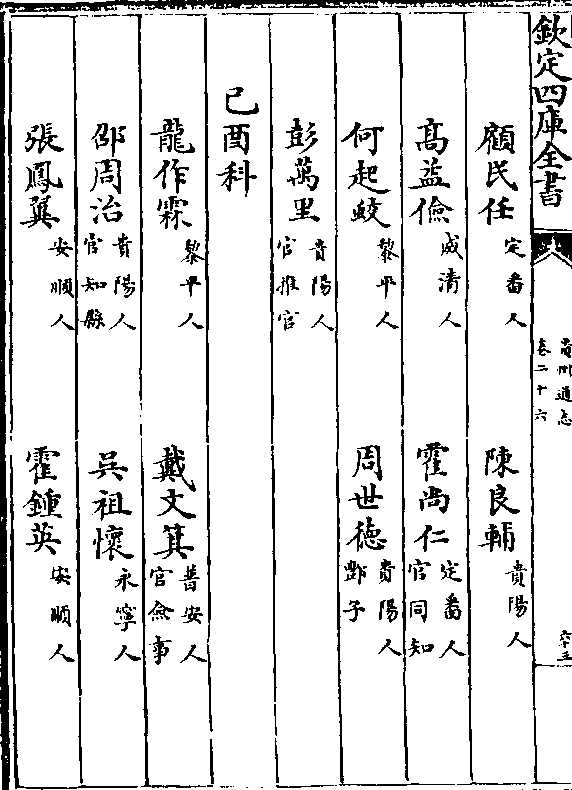 欽定四庫全書
貴州通志
卷二十六
六十五
顧民任 定番人 陳良輔 貴陽人
高益儉 威清人 霍尚仁 定番人官同知
何起蛟 黎平人 周世德 貴陽人酆子
彭萬里 貴陽人官推官
己酉科
龍作霖 黎平人 戴文箕 普安人官僉事
邵周治 貴陽人官知縣 吳祖懷 永寧人
張鳳巽 安順人 霍鍾英 安順人